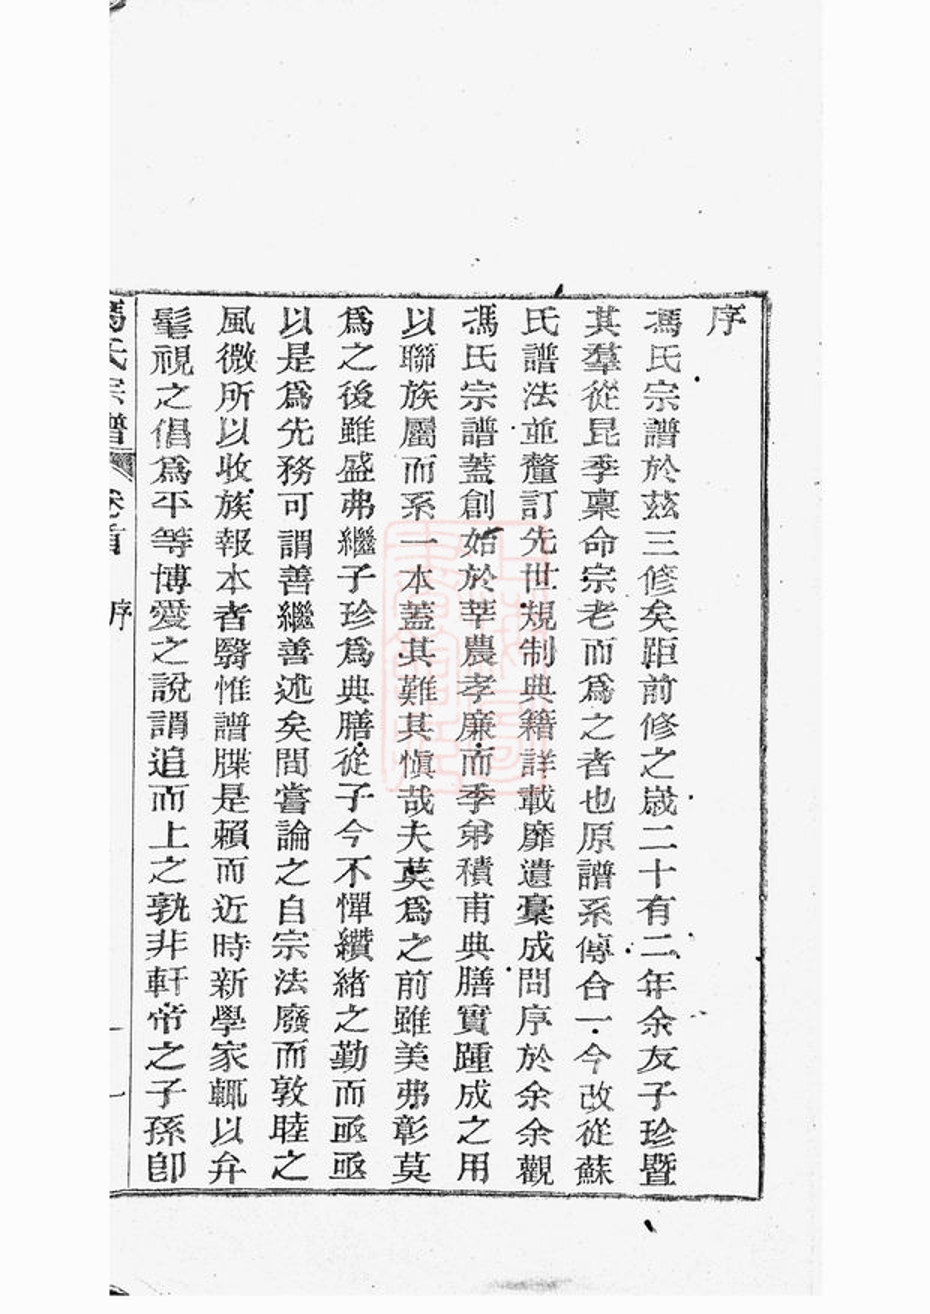 序
馮氏宗譜於茲三修矣距前修之歲二十有二年余友子珍暨
其羣從昆季稟命宗老而爲之者也原譜系傳合一今改從蘇
氏譜法並釐訂先世規制典籍詳載靡遺稾成問序於余余觀
馮氏宗譜蓋創始於莘農孝廉而季弟積甫典膳實踵成之用
以聯族屬而系一本蓋其難其愼哉夫莫爲之前雖美弗彰莫
爲之後雖盛弗繼子珍爲典膳從子今不憚纘緖之勤而亟亟
以是爲先務可謂善繼善述矣間嘗論之自宗法廢而敦睦之
風微所以收族報本者翳惟譜牒是賴而近時新學家輒以弁
髦視之倡爲平等博愛之說謂追而上之孰非軒帝之子孫卽
馮氏宗譜 卷首 序 一